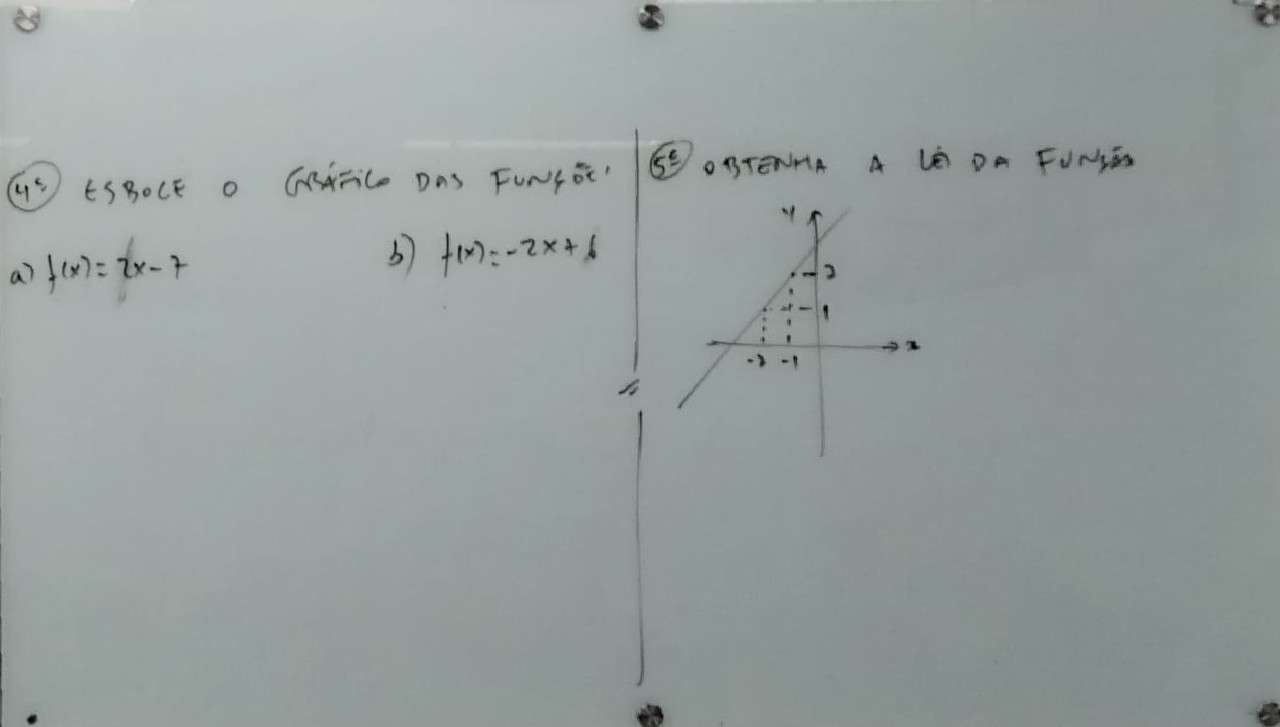 4ª ESBOCE O GRÁFICO DAS FUNÇÕES
a) f(x) = 2x - 7
b) f(x) = -2x + 6
5ª OBTENHA A LEI DA FUNÇÃO
y
1
x
-1